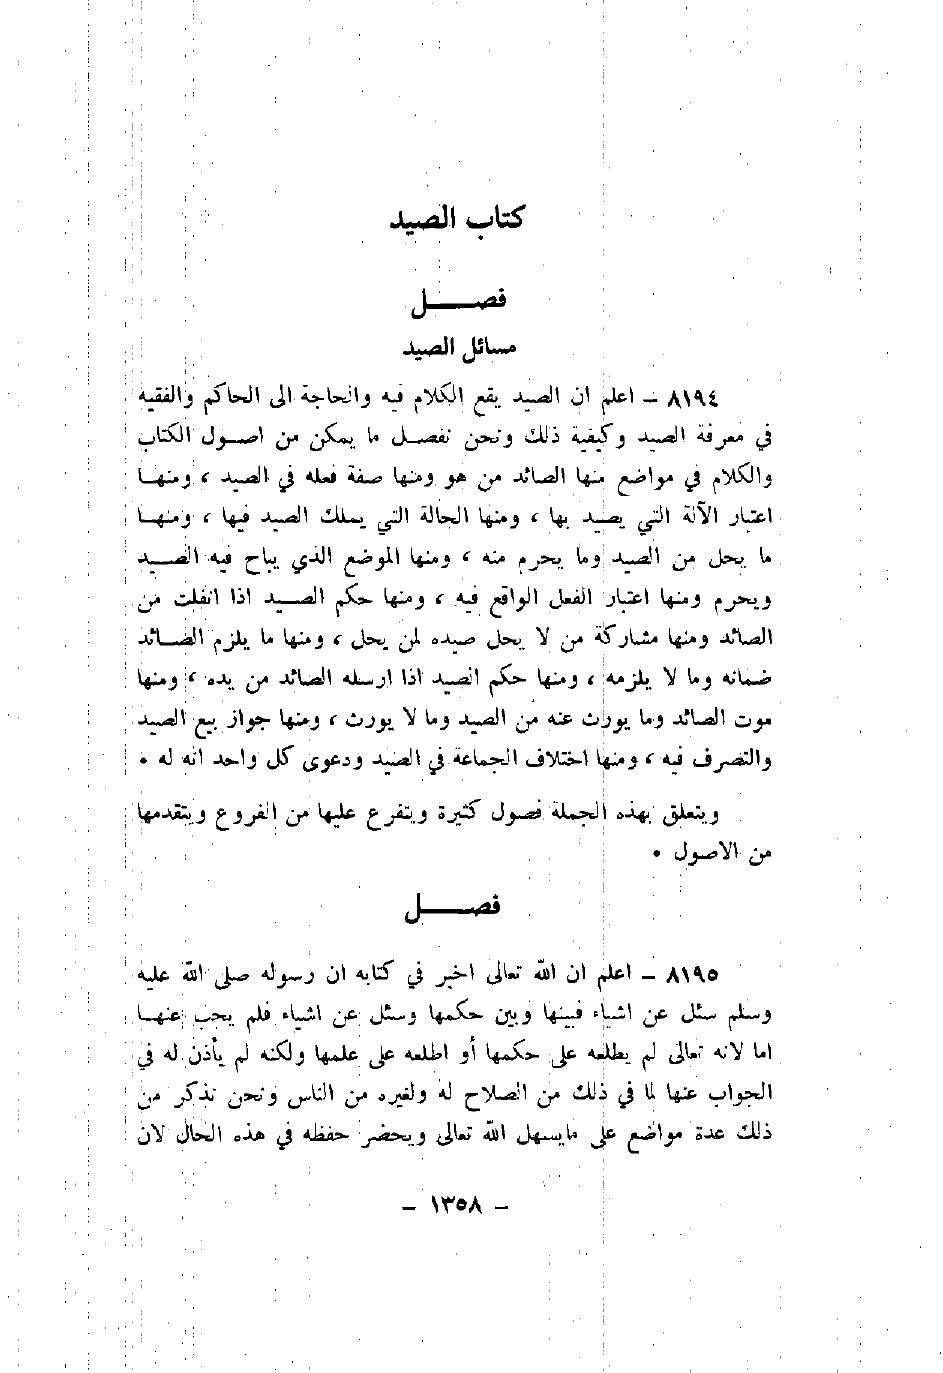 كتاب الصيد
فصـــــل
مسائل الصيد
٨١٩٤ – اعلم ان الصيد يقع الكلام فيه والحاجة الى الحاكم والفقيه
في معرفة الصيد وكيفية ذلك ونحن نفصل ما يمكن من اصول الكتاب
والكلام في مواضع منها الصائد من هو ومنها صفة فعله في الصيد ، ومنها
اعتبار الآلة التي يصيد بها ، ومنها الحالة التي يملك الصيد فيها ، ومنها
ما يحل من الصيد وما يحرم منه ، ومنها الموضع الذي يباح فيه الصيد
ويحرم ومنها اعتبار الفعل الواقع فيه ، ومنها حكم الصيد اذا انفلت من
الصائد ومنها مشاركة من لا يحل صيده لمن يحل ، ومنها ما يلزم الصائد
ضمانه وما لا يلزمه ، ومنها حكم الصيد اذا ارسله الصائد من يده ، ومنها
موت الصائد وما يورث عنه من الصيد وما لا يورث ، ومنها جواز بيع الصيد
والتصرف فيه ، ومنها اختلاف الجماعة في الصيد ودعوى كل واحد انه له .
ويتعلق بهذه الجملة فصول كثيرة ويتفرع عليها من الفروع ويتقدمها
من الاصول .
فصـــــل
٨١٩٥ – اعلم ان الله تعالى اخبر في كتابه ان رسوله صلى الله عليه
وسلم سئل عن اشياء فبينها وبين حكمها وسئل عن اشياء فلم يجب عنها
اما لانه تعالى لم يطلعه على حكمها أو اطلعه على علمها ولكنه لم يأذن له في
الجواب عنها لما في ذلك من الصلاح له ولغيره من الناس ونحن نذكر من
ذلك عدة مواضع على مايسهل الله تعالى ويحضر حفظه في هذه الحال لان
– ١٣٥٨ –